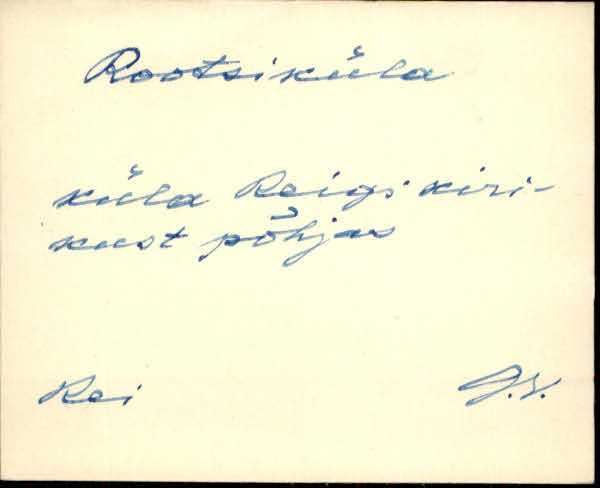 Rootsiküla
küla Reigi kiri-
kust põhjas
Rei J.V.